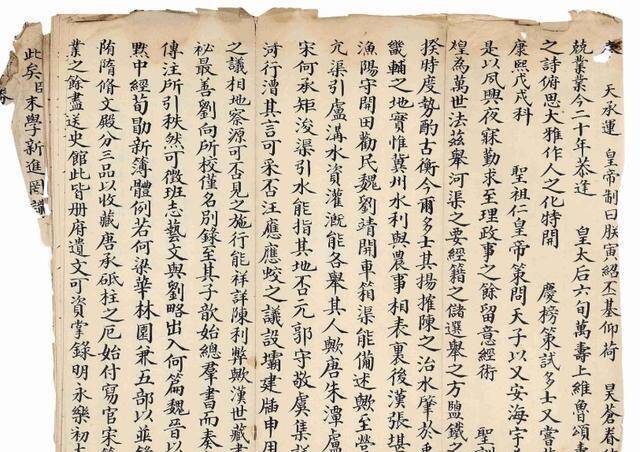 奉　天承運　皇帝制曰朕寅紹丕基仰荷　昊蒼眷
兢業業今二十年恭逢　皇太后六旬萬壽上維魯頌壽
之詩俯思大雅作人之化特開　慶榜策試多士又嘗恭
康熙戊戌科　聖祖仁皇帝策問天子以又安海宇
是以夙興夜寐勤求至理政事之餘留意經術　聖訓
煌為萬世法茲舉河渠之要經籍之儲選舉之方鹽鐵之
揆時度勢酌古衡今爾多士其揚搉陳之治水肇於禹
畿輔之地實惟冀州水利與農事相表裏後漢張堪
漁陽守開田勸民魏劉靖開車箱渠能備述歟至營
亢渠引盧溝水資灌溉能各舉其人歟唐朱潭盧
宋何承矩浚渠引水能指其地否元郭守敬虞集
河行漕其言可采否汪應應蛟之議設壩建牐申用
之議相地察源可否見之施行能祥詳陳利弊歟漢世藏書
祕最善劉向所校僅名別錄至其子歆始總羣書而奏
傳注所引秩然可徵班志藝文與劉略出入何篇魏晉以
默中經荀勖新簿體例若何梁華林園兼五部以並錄
陏隋修文殿分三品以收藏唐承砥柱之厄始付寫官宋
業之餘盡送史館此皆册府遺文可資掌錄明永樂初
此矣臣末學新進罔識